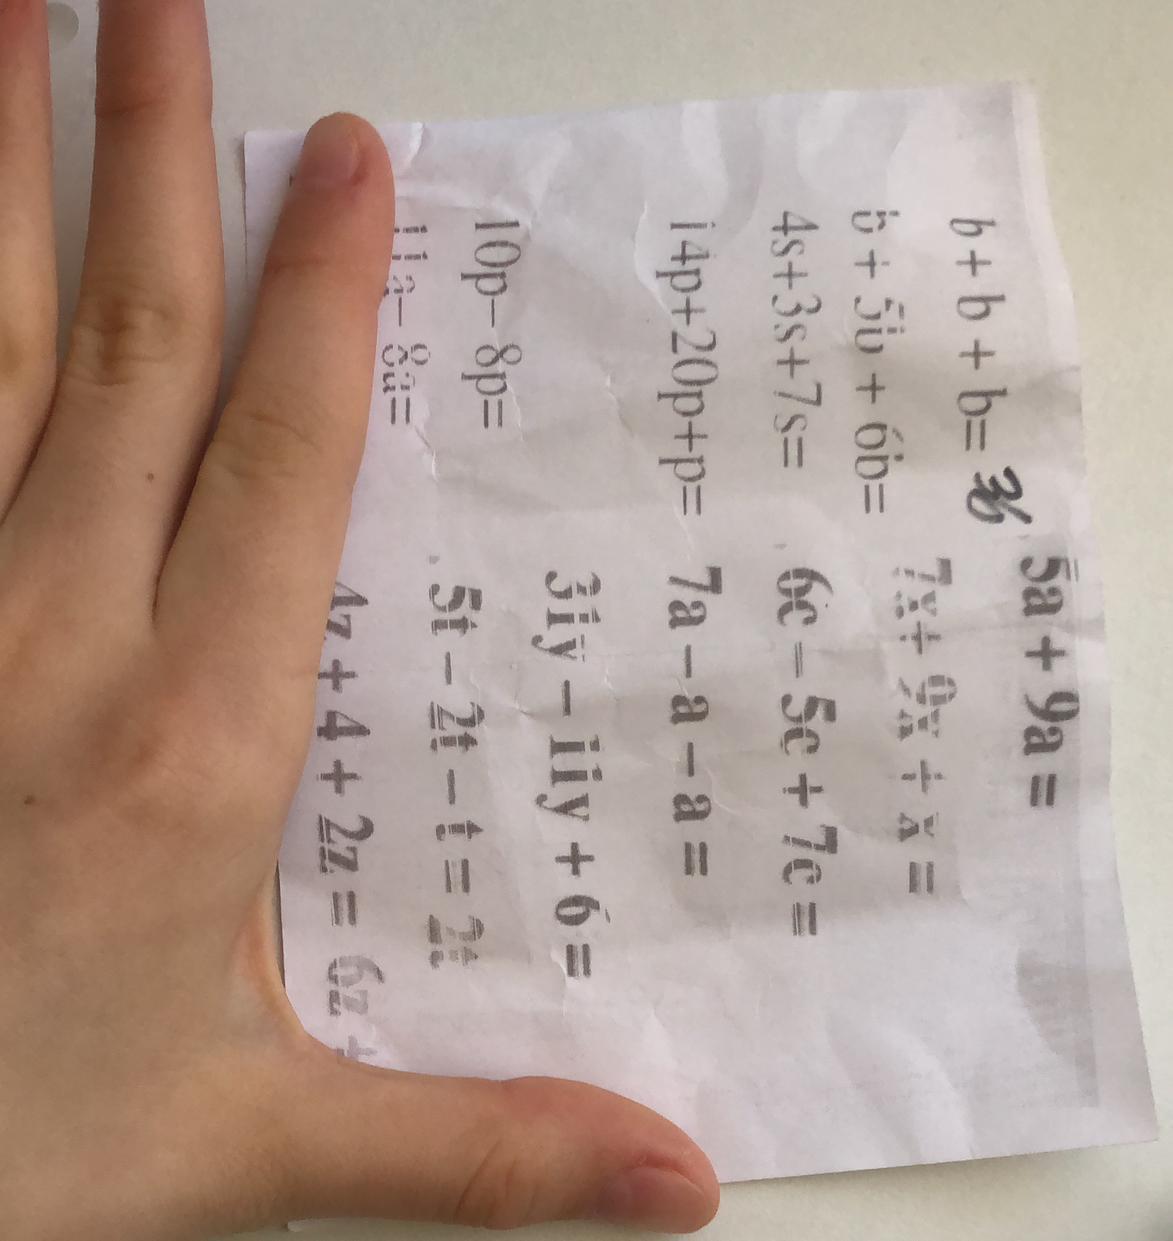 b + b + b= 3b
b + 5b + 6b=
4s+3s+7s=
14p+20p+p=
10p– 8p=
11a– 8a=
5a + 9a =
7x + 9x + x =
6c – 5c + 7c =
7a – a – a =
31y – 11y + 6 =
5t – 2t – t = 2t
4z + 4 + 2z = 6z +